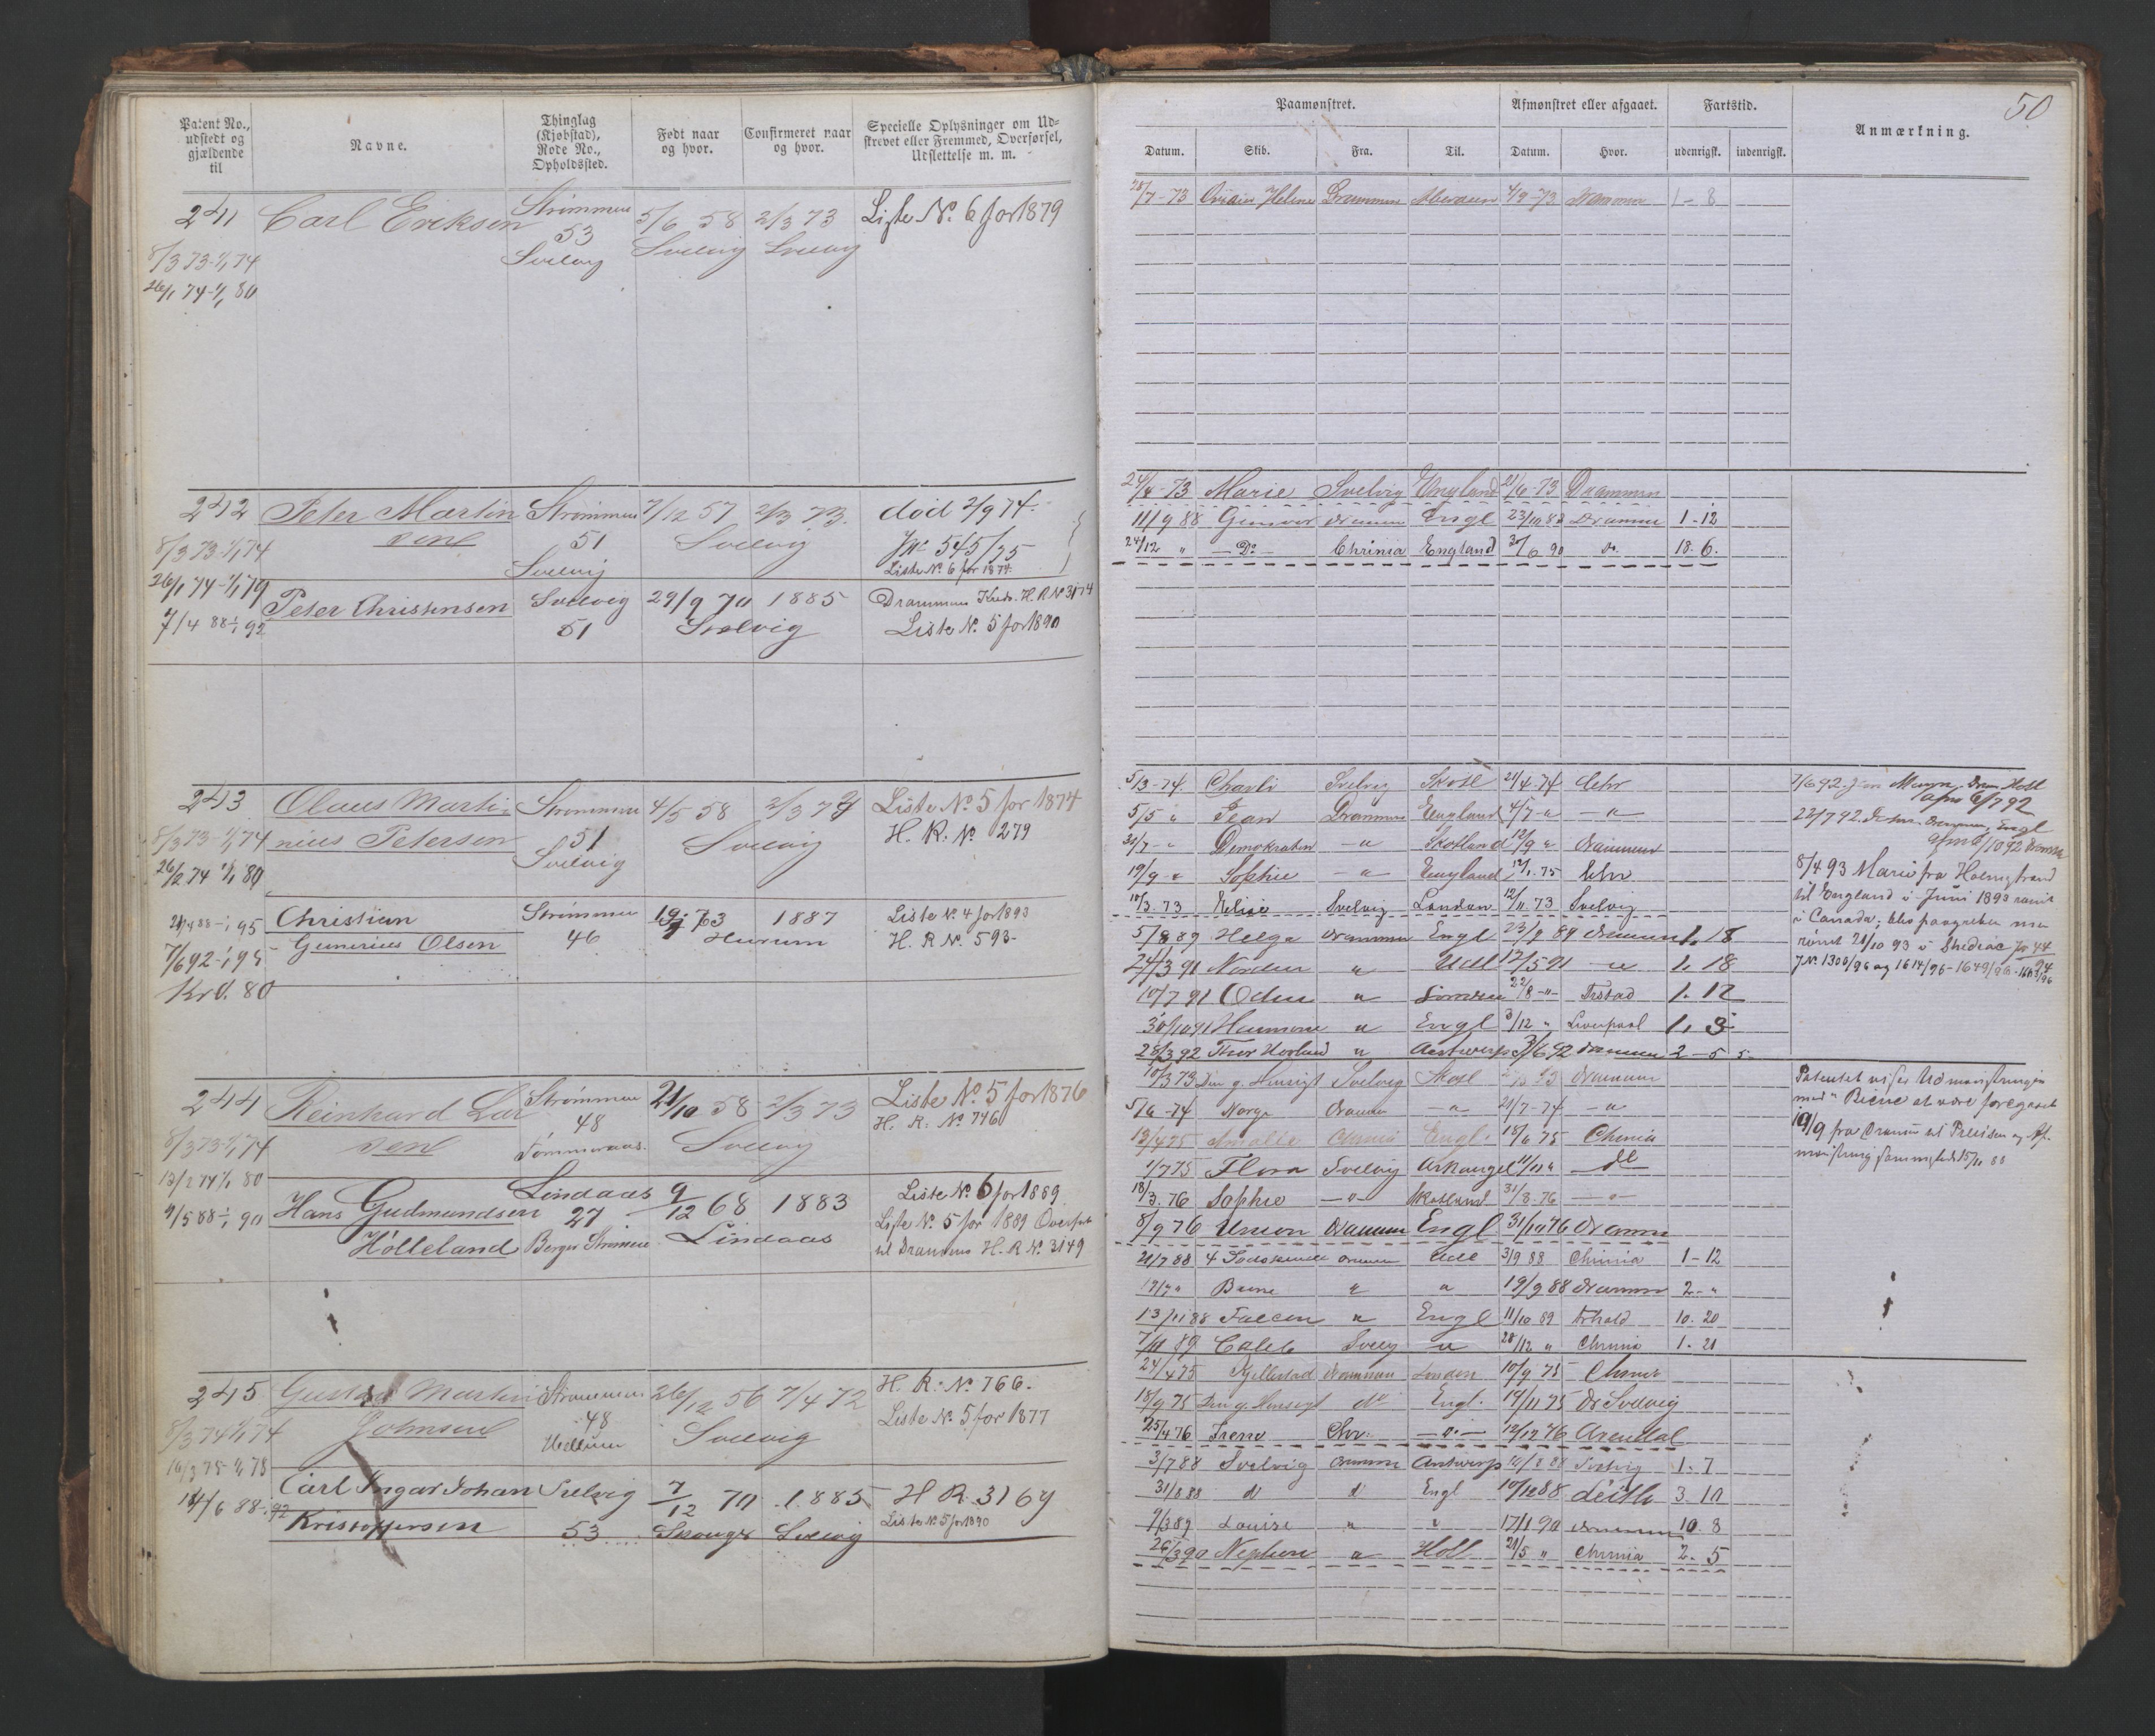 Patent No., udstedt og gjældende til
Navne.
Thinglag (Kjøbstad), Rode No., Opholdssted.
Født naar og hvor.
Confirmeret naar og hvor.
Specielle Oplysninger om Udskrevet eller Fremmed, Overførsel, Udslettelse m. m.
241 Carl Eriksen Strømmen 5/6 58 2/3 73 Liste No. 6 for 1879
8/3 73-1/1 74 53 Svelvig Svelvig Svelvig
26/1 74-1/1 80
242 Peter Martin Strømmen 7/12 57 2/3 73. død 2/9 74.
8/3 73-1/1 74 51 Svelvig JNo 545/75
Svelvig Liste No. 6 for 1874.
26/1 74-1/1 79 Peter Christensen Svelvig 29/9 70 1885 Drammens H. R No 3174
7/4 88-1/1 92 51 Svelvig Liste No. 5 for 1890
243 Olaus Marti- Strømmen 4/5 58 2/3 73 Liste No. 5 for 1874
8/3 73-1/1 74 nius Petersen 51 Svelvig H. R. No. 279
26/2 74 1/1 80 Svelvig
21/4 88-1/1 95 Christian Strømmen 73 1887 Liste No. 4 for 1893
7/6 92-1/1 95 Gunerius Olsen 46 Hurum H. R No. 593-
Krd. 80
244 Reinhard Lar Strømmen 21/10 58 2/3 73 Liste No. 5 for 1876
8/3 73-1/1 74 sen 48 Svelvig H. R. No 746
13/2 74 1/1 80 Tømmeraas.
9/5 88-1/1 90 Hans Gudmundsen Lindaas 27 9/12 68 1883 Liste No. 6 for 1889
Hølleland Berger Strømm Lindaas Liste No. 5 for 1889 Overført
til Drammens H. R No. 3149
245 Gustav Martin Strømmen 26/12 56 7/4 72 H. R. No. 766.
8/3 74 1/1 74 Johnsen 48 Svelvig Liste No. 5 for 1877
16/3 75-1/1 78
14/6 88-1/1 92 Carl Ingar Johan Svelvig 7/12 70 1885 H R. 3169
Kristoffersen 53 Skouger Svelvig Liste No. 5 for 1890
50
Paamønstret.
Afmønstret eller afgaaet.
Fartstid.
Anmærkning.
Datum. Skib. Fra. Til. Datum. Hvor. udenrigsk. indenrigsk.
28/7-73 Helene Drammen 4/9-73 Drammen 1-8
24/4-73 Marie Svelvig England 21/6-73 Drammen
11/9 88 Gunvor Drammen Engl 23/10 88 Drammen 1-12
24/12 " - Do - Chrinia England 30/6 90 do. 18. 6.
5/3-74. Charli Svelvig Skotl 21/4-74 Chr
5/5 " Jean Drammen England 4/7-" - " -
31/7-" Demokraten - " - Skotland 12/9 " Drammen
19/9-" Sophie - " - England 12/1.75 Chr
10/3-73 Elise Svelvig London 12/11 73 Svelvig
5/8 89 Helga Drammen Engl 23/9 89 Drammen 1. 18
24/3 91 Norden " Udl 12/5 91 " 1. 18
10/7 91 Odin " 22/8-"- Frstad 1. 12
30/10 91 " Engl 3/12 " Liverpool 1. 3
28/3 92 Thor " Antwerp 3/6 92 Drammen 2-5
10/3 73 Den g. Hensigt Svelvig Skotl Drammen
5/6-74 Norge Drammen - " - 21/7-74 - " -
12/4 75 Amalie Chrinia Engl. 18/6 75 Chrinia
1/7 75 Flora Svelvig Arkangel 11/11 " do
18/3. 76 Sophie - " - Skotland 31/8-76 - " -
8/9 76 Union Drammen Engl 31/10 76 Drammen
21/7 88 4 Sødskende Drammen Udl 3/9 88 Chrinia 1-12
17/9 " Biene " " 19/9 88 Drammen 2-"
13/11 88 Falcon " Engl 11/10 89 Frhald 10. 20
7/11 89 Caleb Svelvig " 28/12 " Chrinia 1. 21
24/4 75 Kjellestad Drammen London 10/9 75 Chrinia
18/9 75 Den g. Hensigt do Engl. 14/11 75 Dr Svelvig
25/4 76 Irene Chr. - " - 12/12 76 Arendal
3/7 88 Svelvig Drammen Antwerp 14/8 88 Svelvig 1. 7
31/8 88 d d Engl 10/12 88 Leith 3. 10
9/3 89 Louise " " 17/1 90 Drammen 10. 8
26/3 90 Neptun " Holl 21/5 " Chrinia 2. 5
7/6 92. Dram Holl
afm 6/7 92
22/7 92. Drammen Engl
afm 6/10 92 Dramm
8/4 93 Marie fra Holmestrand
til England i Juni 1893 rømt
i Canada; blev paagreben
rømt 21/10 93 i Shediac Jo 44/94
JNo. 1300/96 og 1614/96 - 1649/96 -
Patentet viser Udmønstringen
med "Biene at være foregaaet
19/9 fra Drammen til Preusen og Af-
mønstring sammesteds 15/11 88